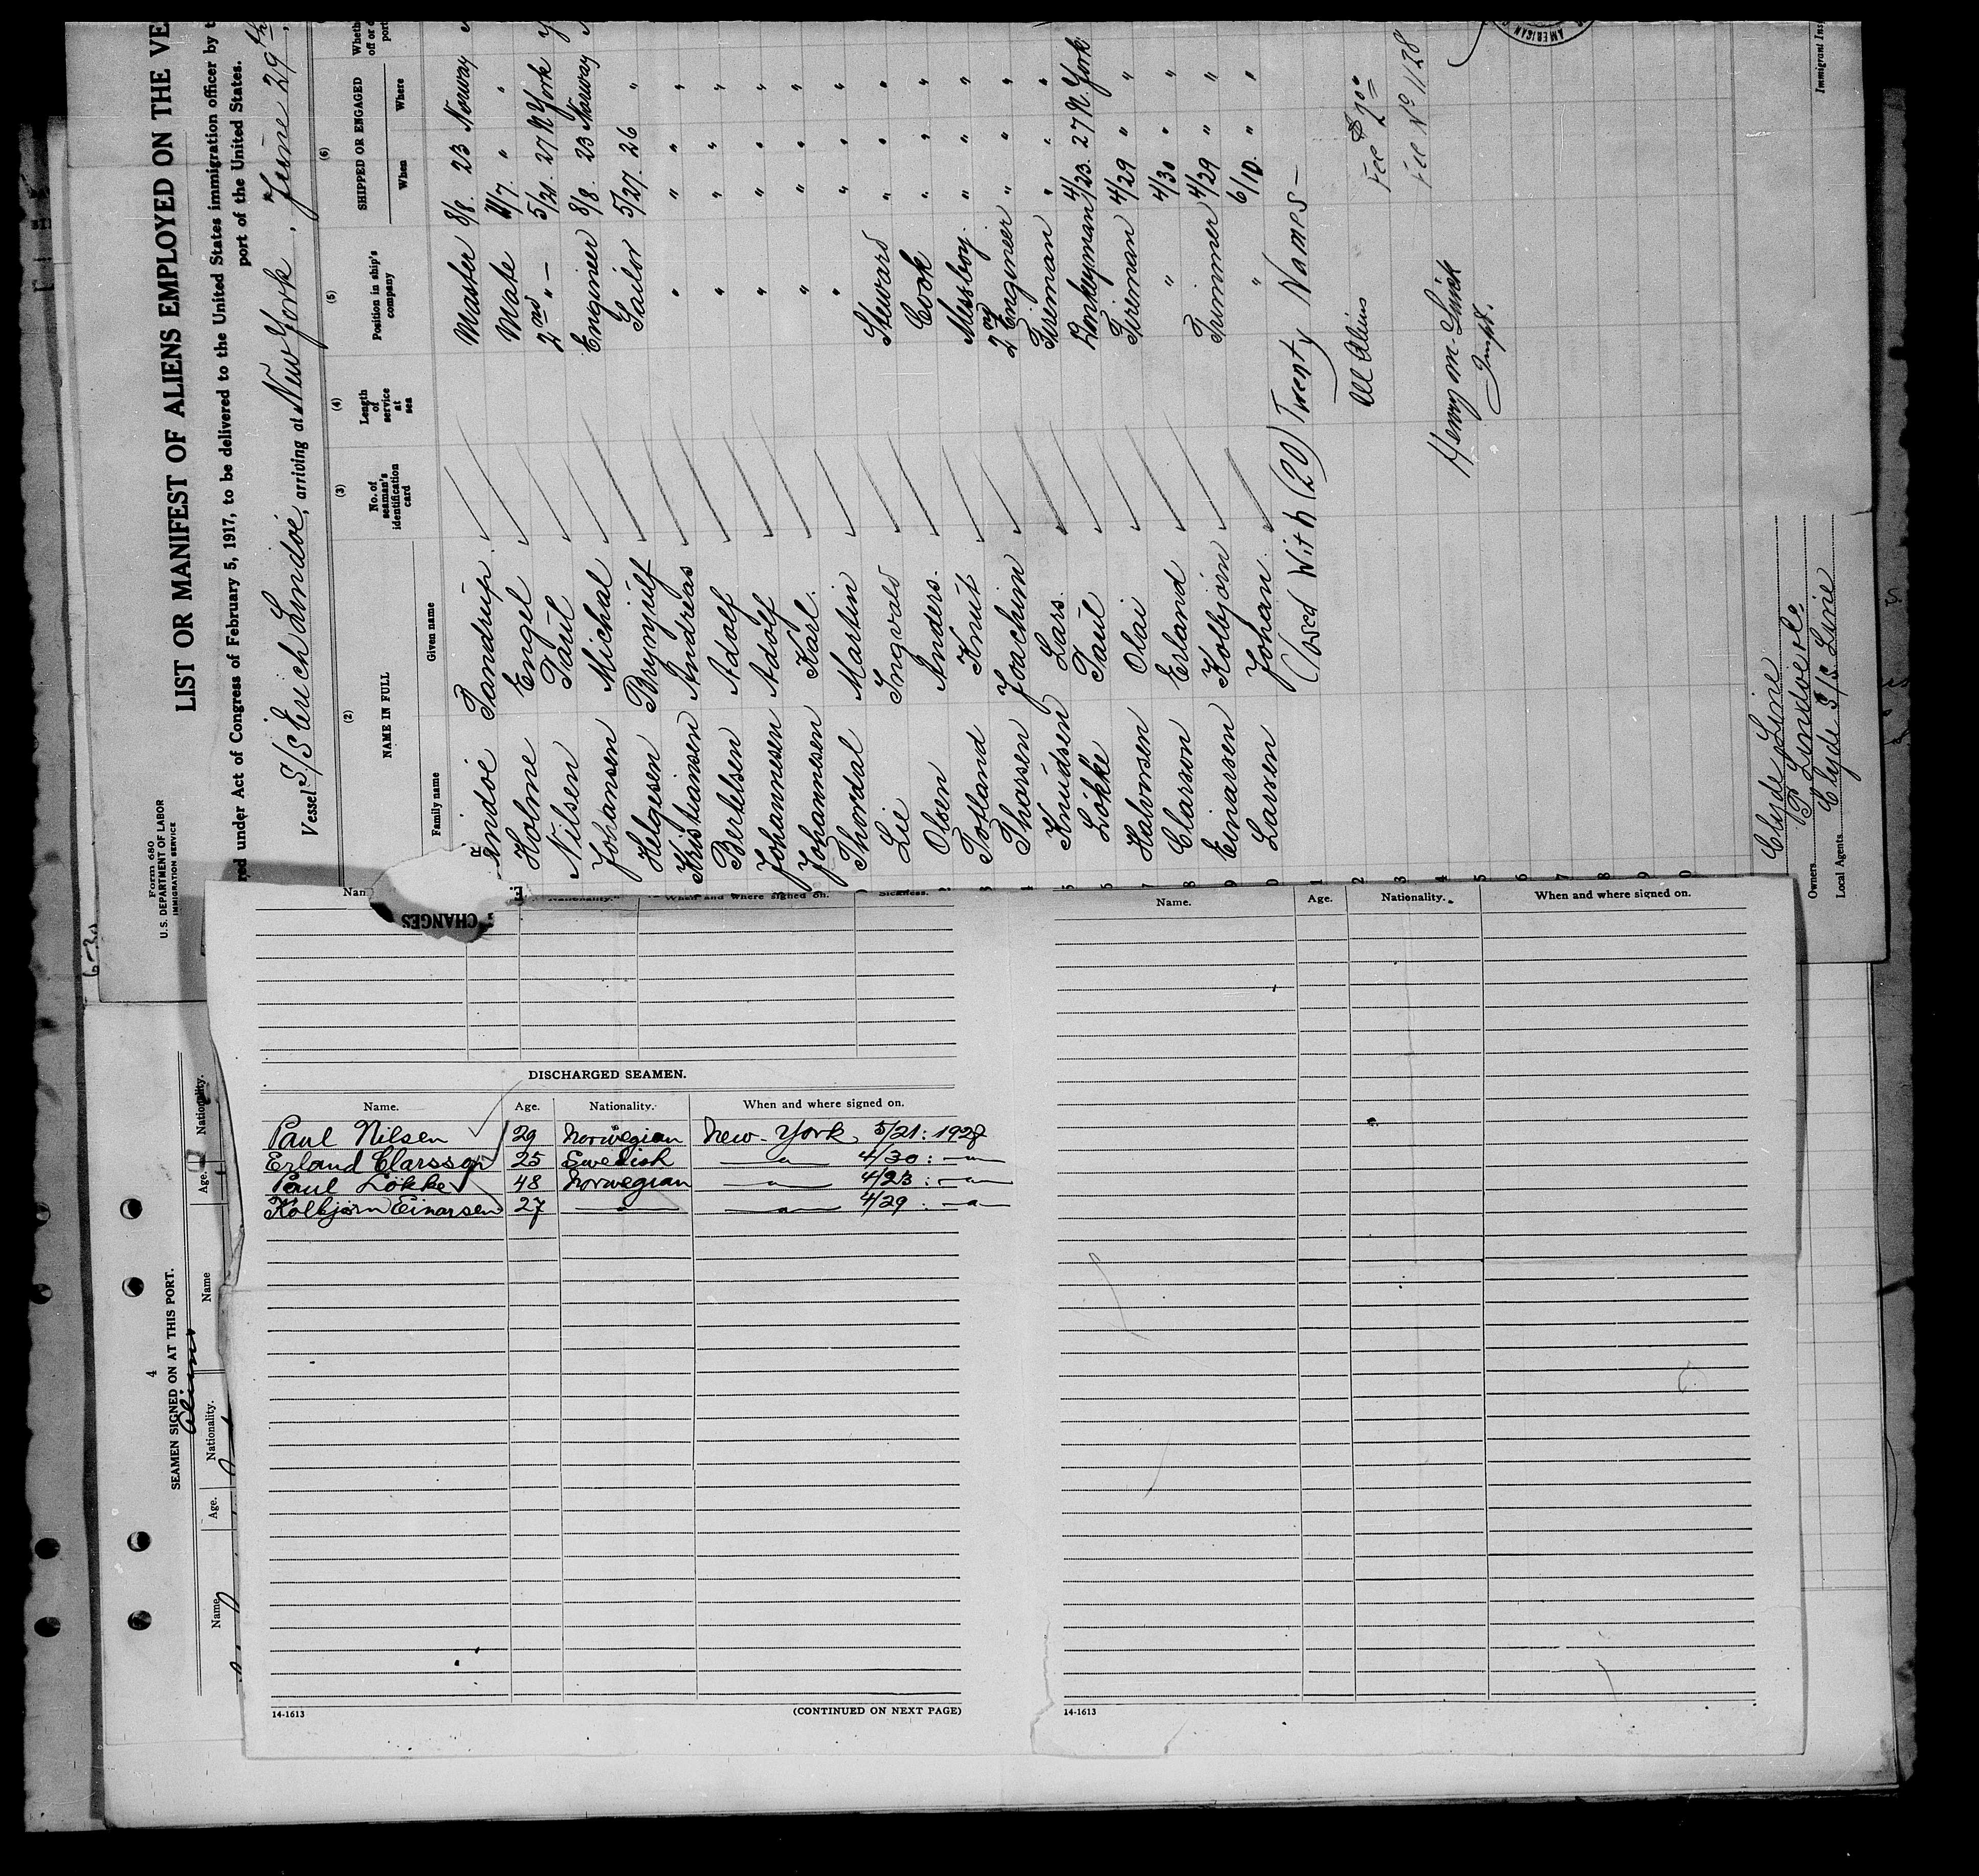 Form 680
U.S. DEPARTMENT OF LABOR
IMMIGRATION SERVICE
LIST OR MANIFEST OF ALIENS EMPLOYED ON THE VE
red under Act of Congress of February 5, 1917, to be delivered to the United States immigration officer by t
port of the United States.
Vessel S/S Erich Lindöe, arriving at New York, June 29th,
(2) (3) (4) (5) (6)
NAME IN FULL No. of seaman's identification card Length of service at sea Position in ship's company SHIPPED OR ENGAGED
Family name Given name When Where
indöe Tandrup Master 8/8. 23 Norway
Holme Engel Mate " "
Nilsen Paul 2nd " 5/21. 27 N York
Johansen Michal Engineer 8/8. 23 Norway
Helgesen Brynjulf Sailor 5/27. 26 "
Kristiansen Andreas " " " "
Bertelsen Adolf " " " "
Johannesen Adolf " " " "
Johannesen Karl. " " " "
Thordal Martin " " " "
Lie Ingvald Steward " " "
Olsen Anders. Cook " " "
Totland Knut Messboy. " " "
Thorsen Joachim 2nd Engineer " " "
Knudsen Lars. Fireman " " "
Lökke Paul Donkeyman 4/23. 27 N. York.
Halvorsen Olai Fireman 4/29 " "
Clarson Erland " 4/30 " "
Einarsen Kolbjørn Trimmer 4/29 " "
Larsen Johan. " 6/10. " "
Closed With (20) Twenty Names —
All Aliens
Fee No 1128
Henry M.
Inspt.
Owners Clyde Line
Local Agents Clyde S/S Line
AMERICAN
CHANGES
When and where signed on.
Sickness.
DISCHARGED SEAMEN.
Name. Age. Nationality. When and where signed on.
Paul Nilsen 29 Norwegian New-York 5/21: 1927
Erland Clarsson 25 Swedish —"— 4/30: —"—
Paul Lökke 48 Norwegian —"— 4/23: —"—
Kolbjørn Einarsen 27 —"— —"— 4/29: —"—
14-1613 (CONTINUED ON NEXT PAGE)
Name. Age. Nationality. When and where signed on.
14-1613
4
SEAMEN SIGNED ON AT THIS PORT.
Aliens
Name. Age. Nationality. Name Age. Nationality.